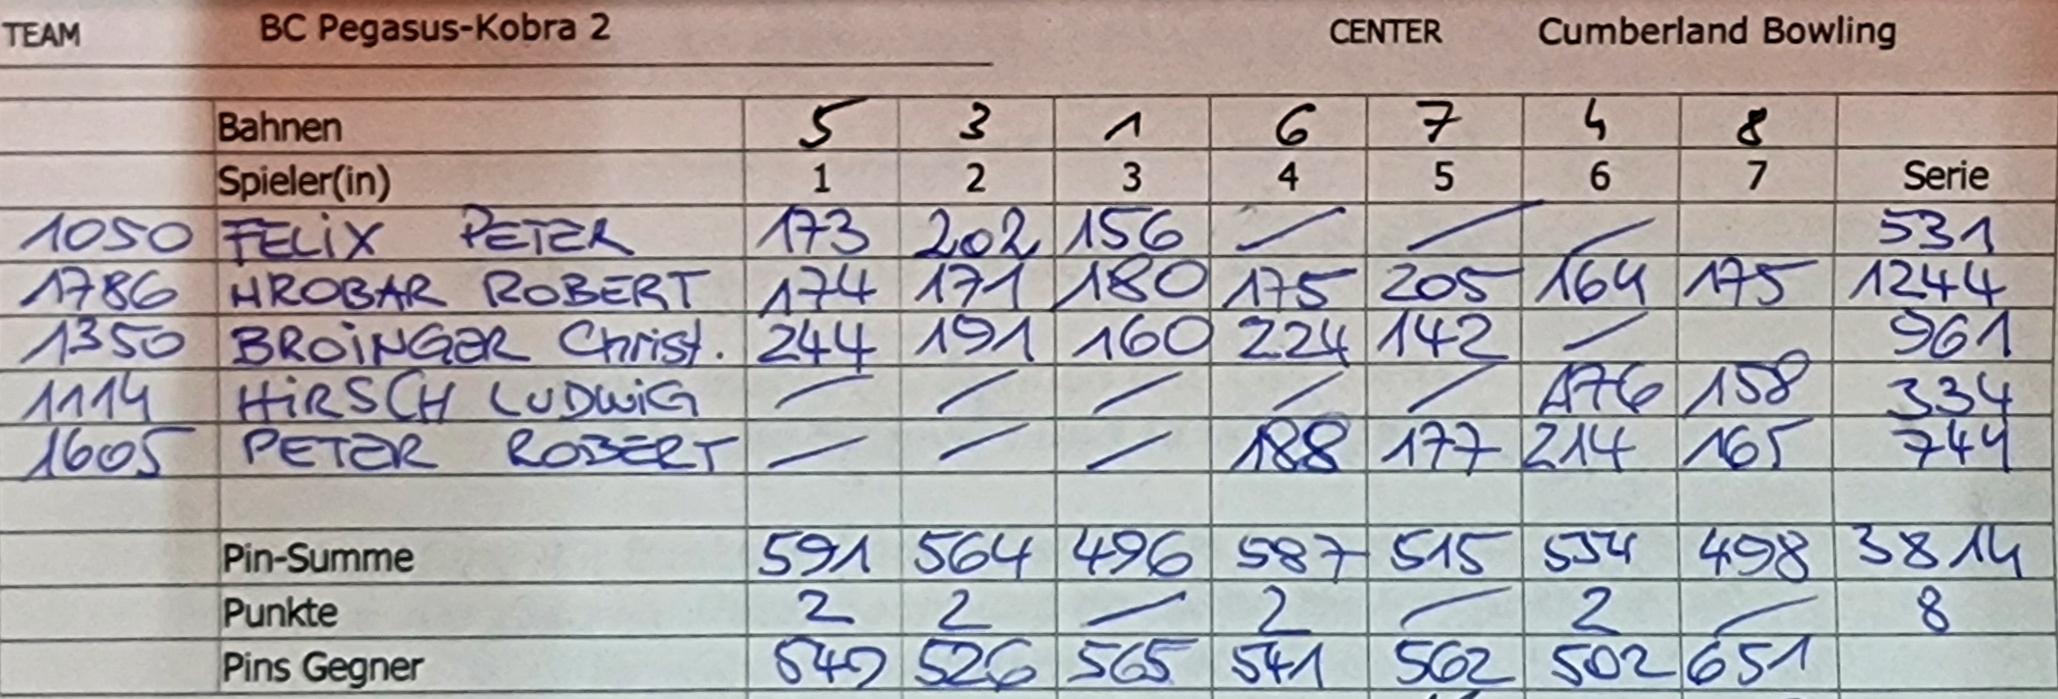 TEAM BC Pegasus-Kobra 2 CENTER Cumberland Bowling
Bahnen 5 3 1 6 7 4 8
Spieler(in) 1 2 3 4 5 6 7 Serie
1050 FELIX PETER 173 202 156 / / / 531
1786 HROBAR ROBERT 174 171 180 175 205 164 175 1244
1350 BROINGER Christ. 244 191 160 224 142 / 961
1114 HIRSCH LUDWIG / / / / / 176 158 334
1605 PETER ROBERT / / / 188 177 214 165 744
Pin-Summe 591 564 496 587 515 554 498 3814
Punkte 2 2 / 2 / 2 / 8
Pins Gegner 549 526 565 541 562 502 651